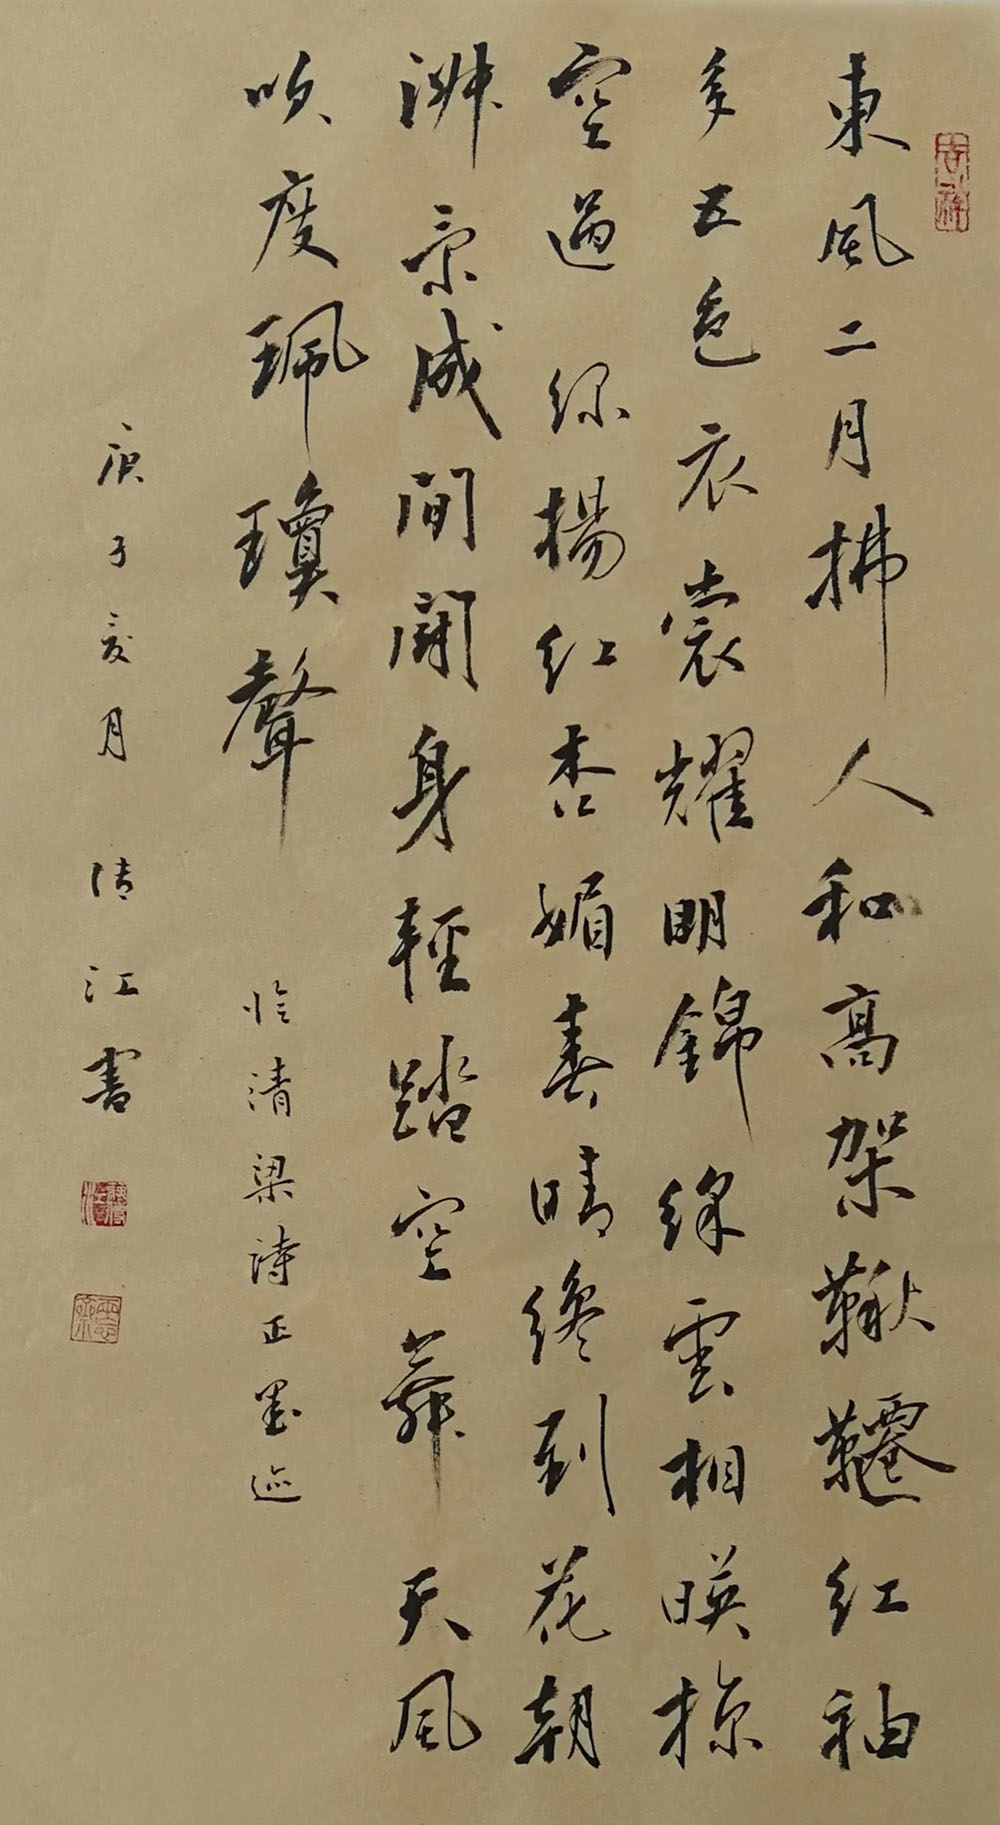 東風二月拂人和高架鞦韆紅袖
多五色衣裳耀明錦綵雲相暎掠
空過綠楊紅杏媚春晴纔到花朝
淑景成間鬪身輕踏空舞天風
吹度珮瓊聲
临清梁詩正墨迹
庚子亥月 清江書